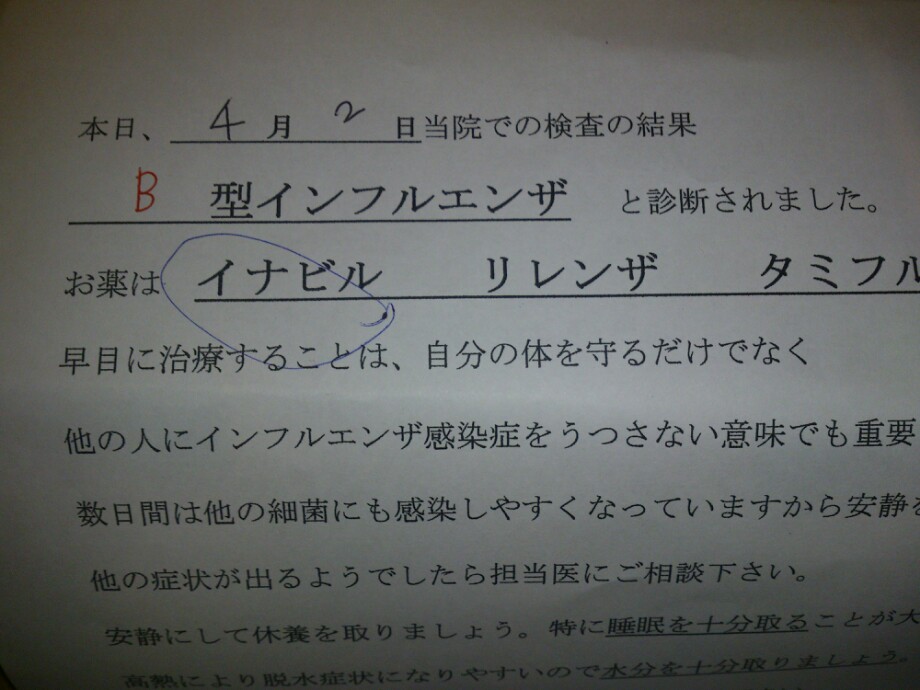 本日、 4 月 2 日当院での検査の結果
B 型インフルエンザ と診断されました。
お薬は イナビル リレンザ タミフル
早目に治療することは、自分の体を守るだけでなく
他の人にインフルエンザ感染症をうつさない意味でも重要
数日間は他の細菌にも感染しやすくなっていますから安静を
他の症状が出るようでしたら担当医にご相談下さい。
安静にして休養を取りましょう。特に睡眠を十分取ることが大
高熱により脱水症状になりやすいので水分を十分取りましょう。